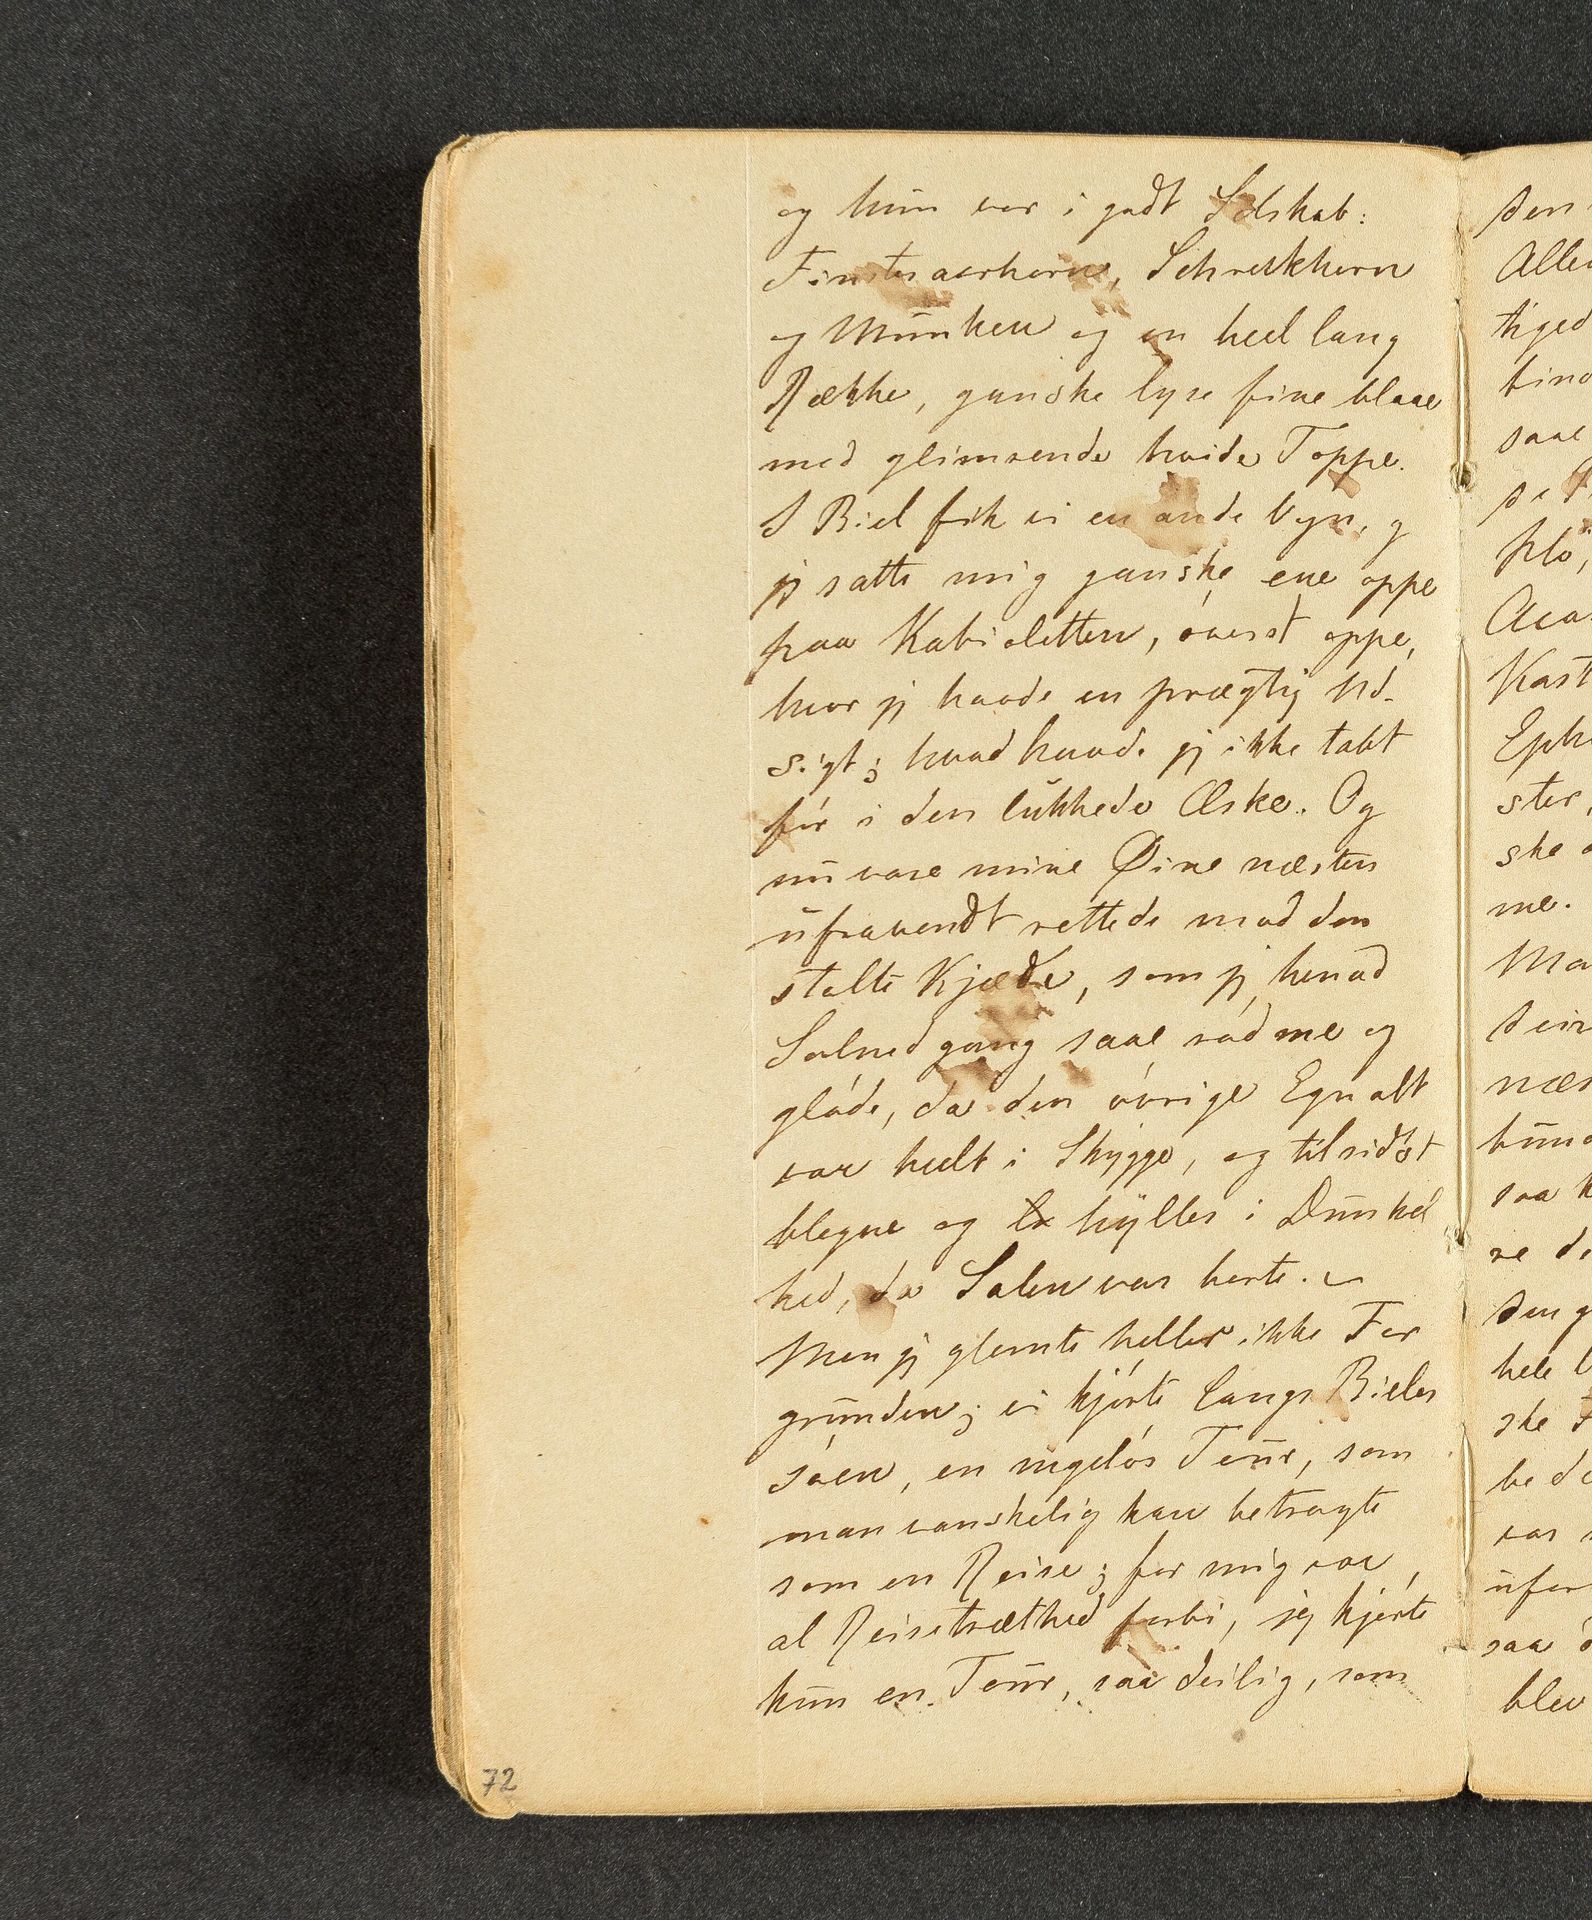 og hun var i godt Selskab:
Finsteraarhorn, Schreckhorn
og Munken og en heel lang
Række, ganske lyse fine blaae
med glimrende hvide Toppe.
I Biel fik vi en ande Vgn, og
jeg satte mig ganske ene oppe
paa Kabioletten, óverst oppe,
hvor jeg havde en prægtig Ud-
sigt; hvad havde jeg ikke tabt
fór i den lukkede Æske. Og
nu vare mine Øine næsten
ufravendt rettede mod den
stolte Kjæde, som jeg henad
Solnedgang saae rødme og
glóde, da den óvrige Egn alt
var heelt i Skygge, og tilsidst
blegne og hylles i Dunkel
hed, da Solen var borte. –
Men jeg glemte heller ikke For
grunden; vi kjórte langs Bieler
sóen, en mageløs Tour, som
man vanskelig kan betragte
som en Reise; for mig var
al Reisetræthed forbi, jeg kjórte
kun en Tour, saa deilig, som
72
den
Alle
tiged
bind
saae
Kast
Eph
ster,
ske
me.
Ma
næs
bund
saa
re
den g
hele
ske
be
var
ufor
saa
blev